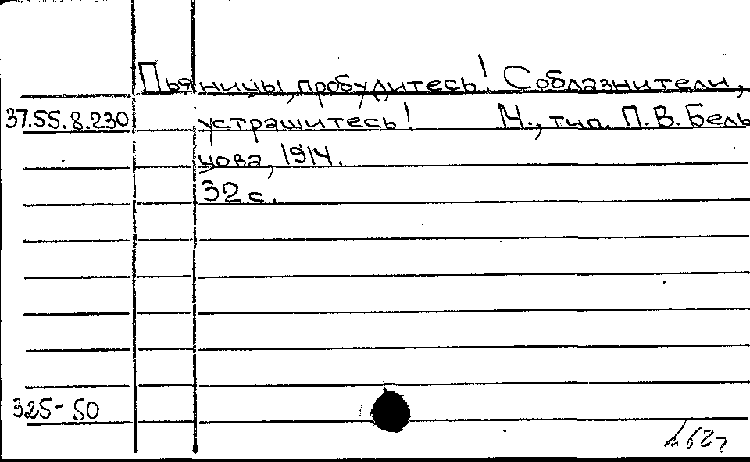 Пьяницы, пробудитесь! Соблазнители,
37.55.8.230 устрашитесь! М., тип. П.В. Бель
цова, 1914.
32 с.
325-50